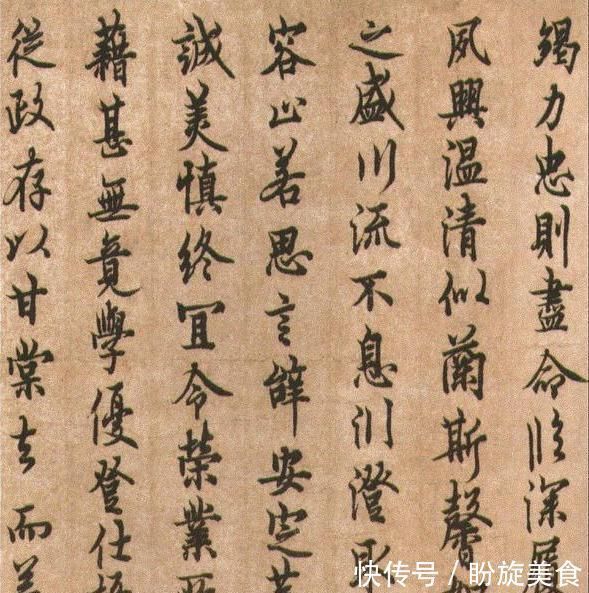 竭力忠則盡命臨深履
夙興温清似蘭斯馨如
之盛川流不息淵澄取
容止若思言辭安定
誠美慎終宜令榮業所
藉甚無竟學優登仕
從政存以甘棠去而益
快传号 / 盼旋美食